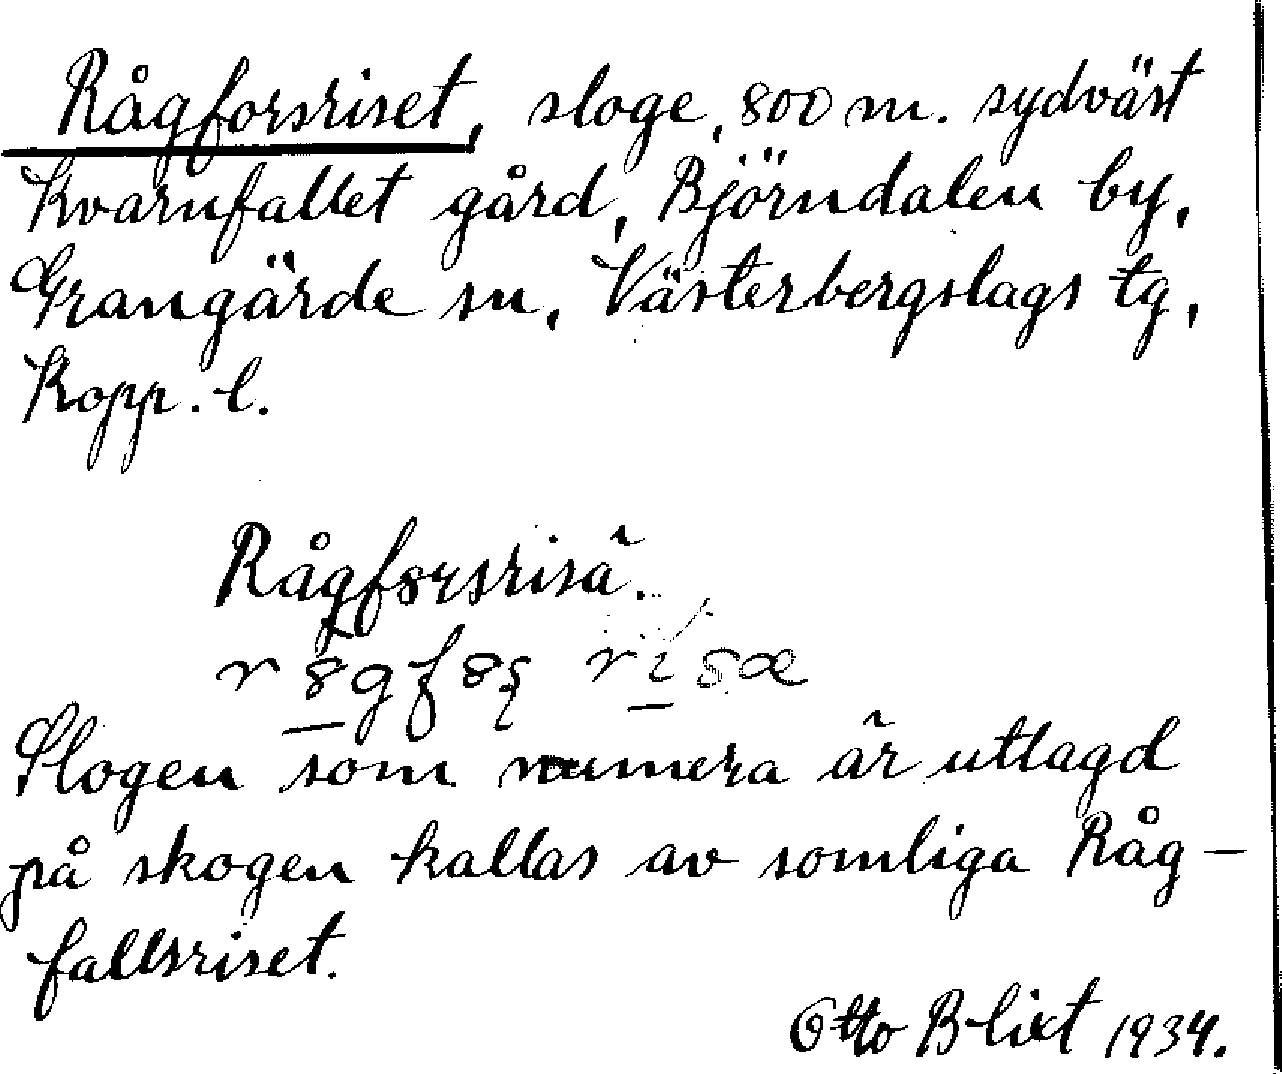 Rågforsriset, sloge, 800 m. sydväst
Kvarnfallet gård, Björndalen by,
Grangärde sn, Västerbergslags tg,
Kopp. l.
Rågforsrisä.
Slogen som numera är utlagd
på skogen kallas av somliga Råg-
fallsriset.
Otto Blixt 1934.